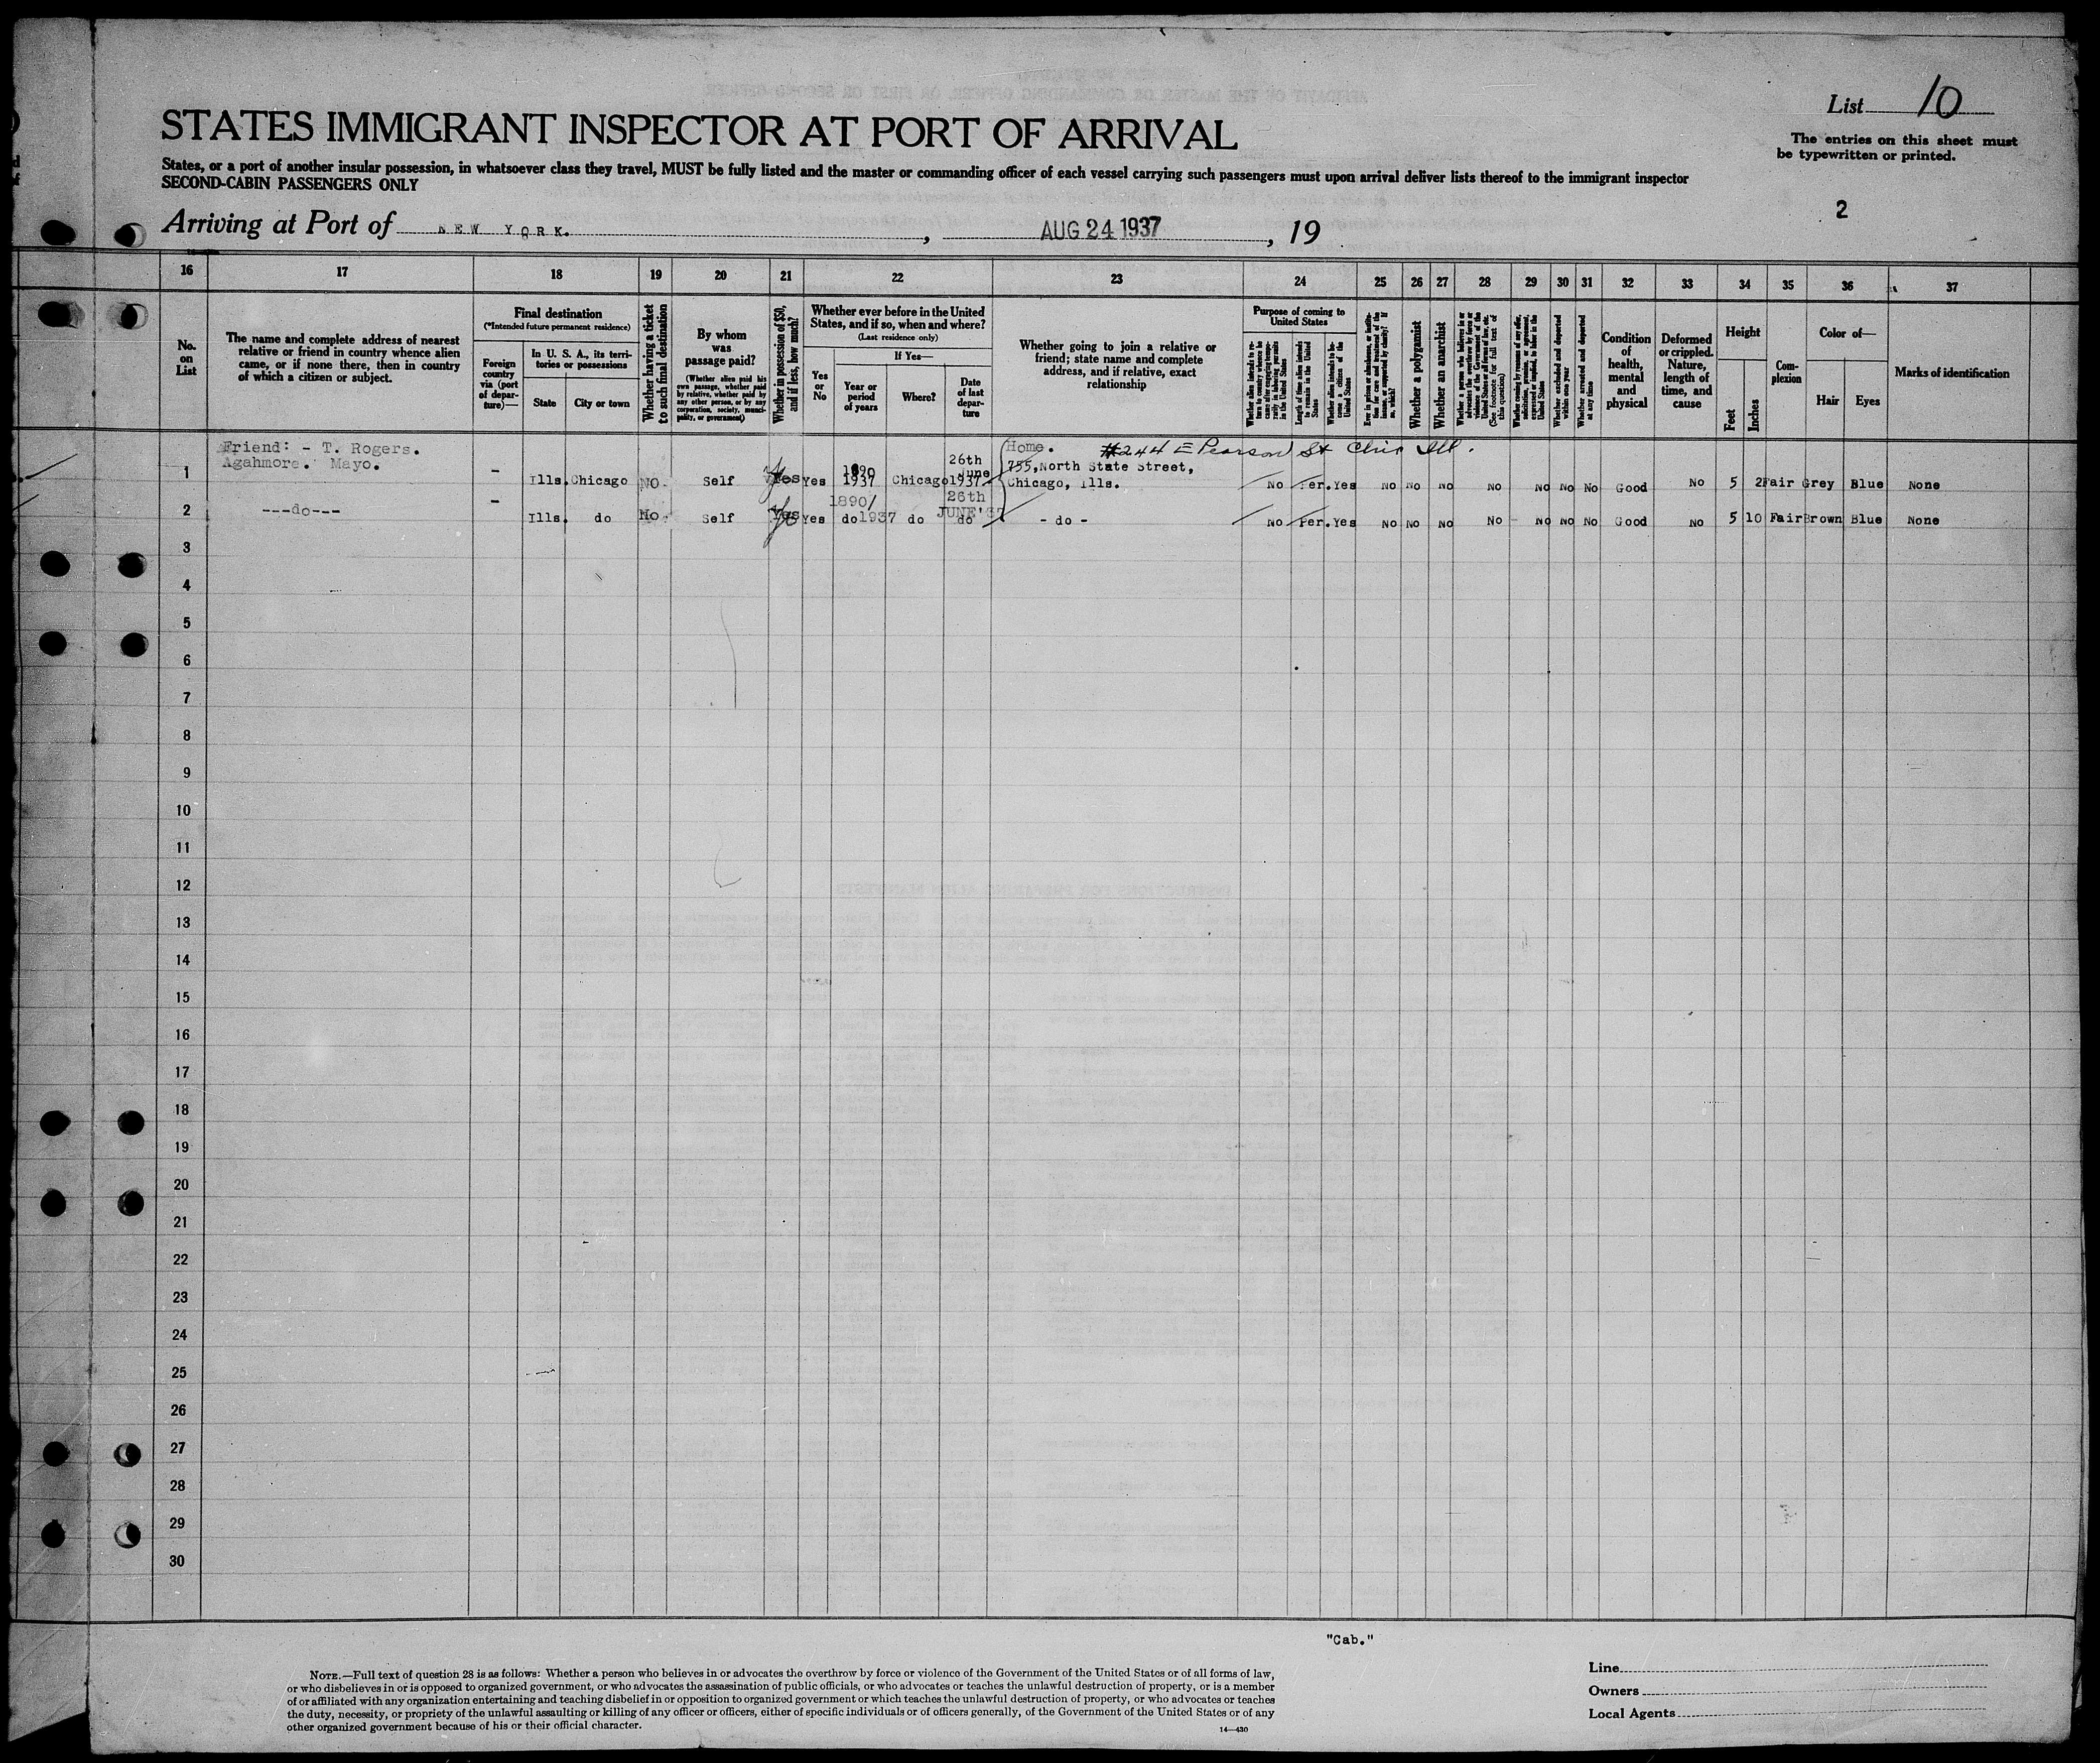 List 10
The entries on this sheet must
be typewritten or printed.
STATES IMMIGRANT INSPECTOR AT PORT OF ARRIVAL
States, or a port of another insular possession, in whatsoever class they travel, MUST be fully listed and the master or commanding officer of each vessel carrying such passengers must upon arrival deliver lists thereof to the immigrant inspector
SECOND-CABIN PASSENGERS ONLY
2
Arriving at Port of NEW YORK. , AUG 24 1937 , 19
16 17 18 19 20 21 22 23 24 25 26 27 28 29 30 31 32 33 34 35 36 37
No.
on
List
The name and complete address of nearest
relative or friend in country whence alien
came, or if none there, then in country
of which a citizen or subject.
Final destination
(*Intended future permanent residence)
Foreign
country
via (port
of depar-
ture)—
In U. S. A., its terri-
tories or possessions
State City or town
Whether having a ticket
to such final destination
By whom
was
passage paid?
(Whether alien paid his
own passage, whether paid
by relative, whether paid by
any other person, or by any
corporation, society, munici-
pality, or government)
Whether in possession of $50,
and if less, how much?
Whether ever before in the United
States, and if so, when and where?
(Last residence only)
Yes
or
No
If Yes—
Year or
period
of years
Where?
Date
of last
depar-
ture
Whether going to join a relative or
friend; state name and complete
address, and if relative, exact
relationship
Purpose of coming to
United States
Length of time alien intends
to remain in the United
States
Whether alien intends to be-
come a citizen of the
United States
Whether a polygamist
Whether an anarchist
Whether deported
within one year
Whether arrested and deported
at any time
Condition
of
health,
mental
and
physical
Deformed
or crippled.
Nature,
length of
time, and
cause
Height
Feet
Inches
Com-
plexion
Color of—
Hair Eyes
Marks of identification
Friend: - T. Rogers.
Agahmore. Mayo.
Home. #244 E Pearson St Chic Ill.
755, North State Street,
Chicago, Ills.
1 - Ills. Chicago No. Self Yes Yes 1890 1937 Chicago 26th June 1937 No Per. Yes No No No No No No No Good No 5 2 Fair Grey Blue None
2 ---do--- - Ills. do No. Self Yes Yes 1890/ do 1937 do 26th JUNE'37 do - do - No Per. Yes No No No No No No No Good No 5 10 Fair Brown Blue None
3
4
5
6
7
8
9
10
11
12
13
14
15
16
17
18
19
20
21
22
23
24
25
26
27
28
29
30
"Cab."
NOTE.—Full text of question 28 is as follows: Whether a person who believes in or advocates the overthrow by force or violence of the Government of the United States or of all forms of law,
or who disbelieves in or is opposed to organized government, or who advocates the assassination of public officials, or who advocates or teaches the unlawful destruction of property, or is a member
of or affiliated with any organization entertaining and teaching disbelief in or opposition to organized government or which teaches the unlawful destruction of property, or who advocates or teaches
the duty, necessity, or propriety of the unlawful assaulting or killing of any officer or officers, either of specific individuals or of officers generally, of the Government of the United States or of any
other organized government because of his or their official character.
14—430
Line
Owners
Local Agents